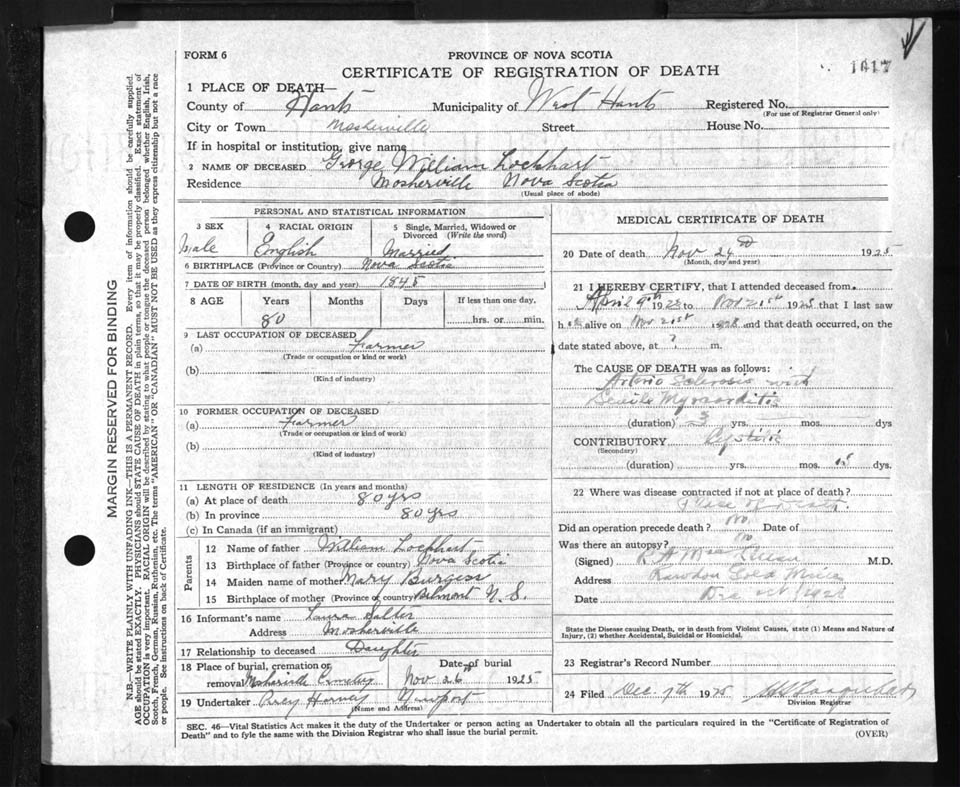 FORM 6
PROVINCE OF NOVA SCOTIA
CERTIFICATE OF REGISTRATION OF DEATH
1417
1 PLACE OF DEATH—
County of Hants Municipality of West Hants Registered No.
(For use of Registrar General only)
City or Town Mosherville Street House No.
If in hospital or institution, give name
2 NAME OF DECEASED George William Lockhart
Residence Mosherville Nova Scotia
(Usual place of abode)
PERSONAL AND STATISTICAL INFORMATION
3 SEX 4 RACIAL ORIGIN 5 Single, Married, Widowed or Divorced (Write the word)
Male English Married
6 BIRTHPLACE (Province or Country) Nova Scotia
7 DATE OF BIRTH (month, day and year) 1845
8 AGE Years Months Days If less than one day,
80 hrs. or min.
9 LAST OCCUPATION OF DECEASED
(a) Farmer
(Trade or occupation or kind or work)
(b)
(Kind of industry)
10 FORMER OCCUPATION OF DECEASED
(a) Farmer
(Trade or occupation or kind of work)
(b)
(Kind of industry)
11 LENGTH OF RESIDENCE (In years and months)
(a) At place of death 80 yrs
(b) In province 80 yrs
(c) In Canada (if an immigrant)
Parents
12 Name of father William Lockhart
13 Birthplace of father (Province or country) Nova Scotia
14 Maiden name of mother Mary Burgess
15 Birthplace of mother (Province or country) Belmont N. S.
16 Informant's name Laura Salter
Address Mosherville
17 Relationship to deceased Daughter
18 Place of burial, cremation or removal Mosherville Cemetery Date of burial Nov 26th 1925
19 Undertaker Percy Harvey Newport
(Name and Address)
MEDICAL CERTIFICATE OF DEATH
20 Date of death Nov 24th 1925
(Month, day and year)
21 I HEREBY CERTIFY, that I attended deceased from
April 9th 1925 to Nov 21st 1925 that I last saw
h alive on Nov 21st and that death occurred, on the
date stated above, at ? m.
The CAUSE OF DEATH was as follows:
Arterio Sclerosis with
Senile Myocarditis
(duration) 3 yrs. mos. dys
CONTRIBUTORY Cystitis
(Secondary)
(duration) yrs. mos. 15 dys.
22 Where was disease contracted if not at place of death?
Place of death.
Did an operation precede death? No. Date of
Was there an autopsy? No
(Signed) M.D.
Address Rawdon Gold Mines
Date
State the Disease causing Death, or in death from Violent Causes, state (1) Means and Nature of
Injury, (2) whether Accidental, Suicidal or Homicidal.
23 Registrar's Record Number
24 Filed Dec. 7th 1925
Division Registrar
SEC. 46—Vital Statistics Act makes it the duty of the Undertaker or person acting as Undertaker to obtain all the particulars required in the "Certificate of Registration of
Death" and to fyle the same with the Division Registrar who shall issue the burial permit.
(OVER)
MARGIN RESERVED FOR BINDING
N.B.—WRITE PLAINLY WITH UNFADING INK—THIS IS A PERMANENT RECORD. Every item of information should be carefully supplied.
AGE should be stated EXACTLY. PHYSICIANS should STATE CAUSE OF DEATH in plain terms, so that it may be properly classified. Exact statement of
OCCUPATION is very important. RACIAL ORIGIN will be described by stating to what people or tongue the deceased person belonged whether English, Irish,
Scotch, French, German, Russian, Ruthenian, etc. The terms "AMERICAN" OR "CANADIAN" MUST NOT BE USED as they express citizenship but not a race
or people. See instructions on back of Certificate.